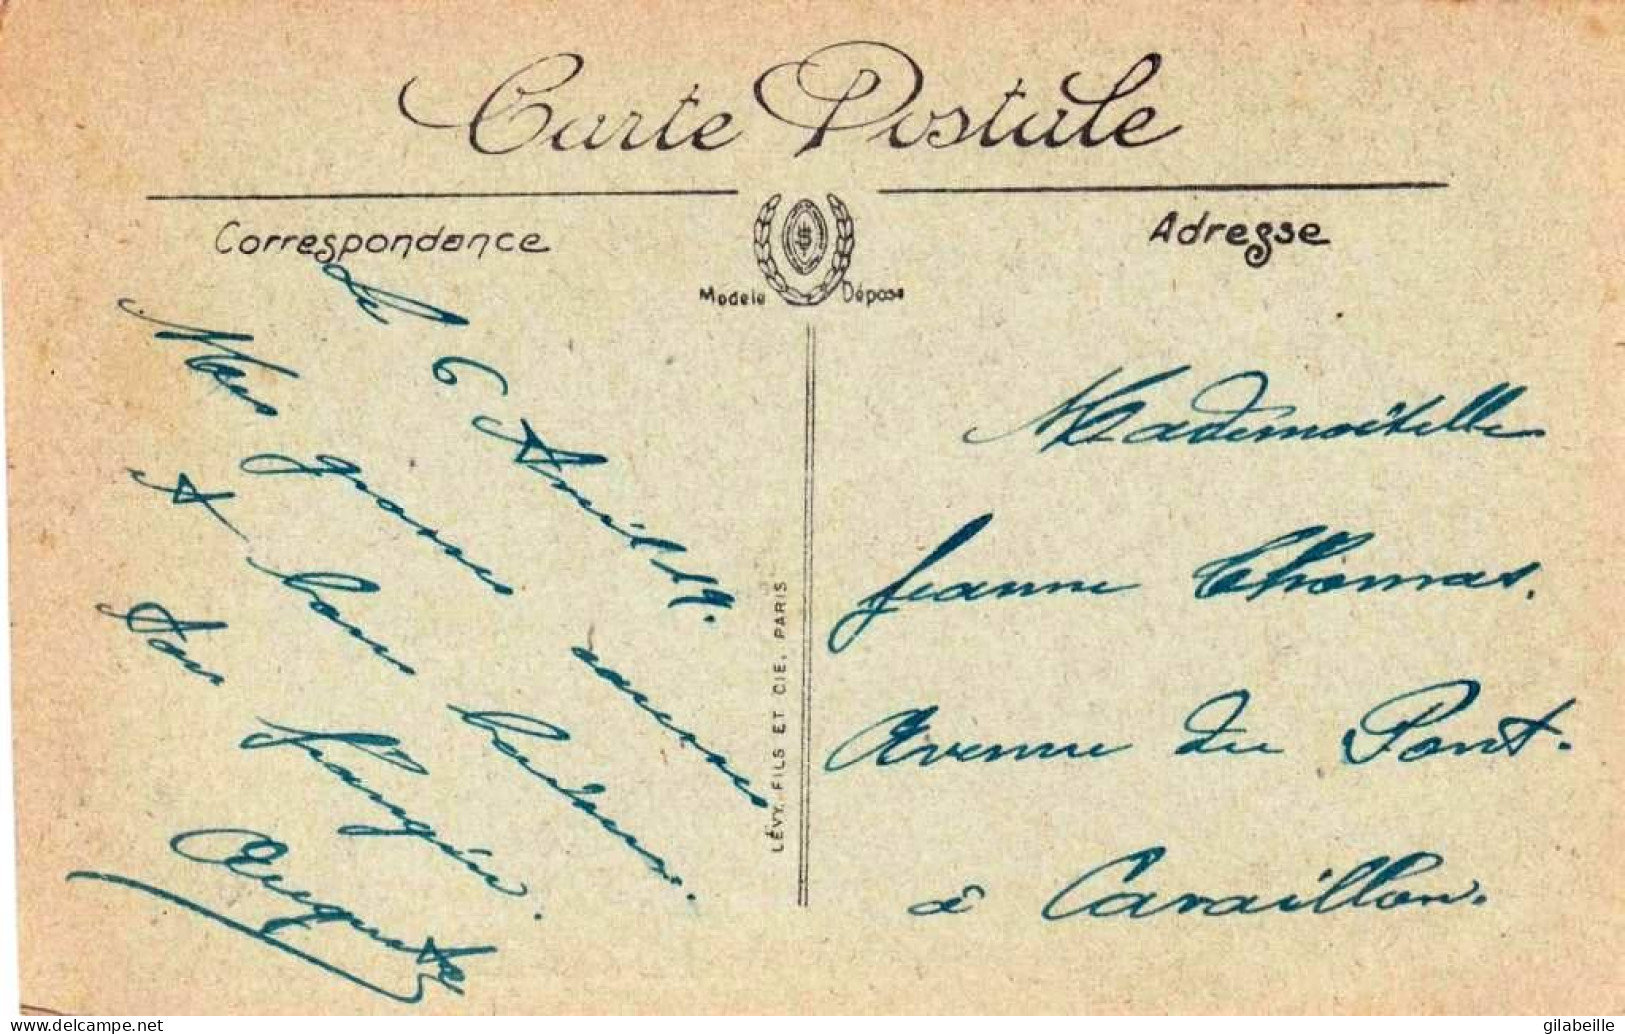 Carte Postale
Correspondance
Adresse
Modele Déposé
Le 6 Avril 19.
Mes grosses caresses
A bon
Ton
Auguste
LÉVY, FILS ET CIE, PARIS
Mademoiselle
Jeanne Thomas.
Avenue du Pont.
à Cavaillon.
delcampe.net
gilabeille